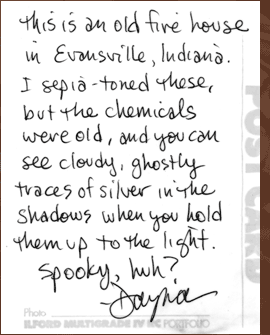 this is an old fire house
in Evansville, Indiana.
I sepia-toned these,
but the chemicals
were old, and you can
see cloudy, ghostly
traces of silver in the
shadows when you hold
them up to the light.
spooky, huh?
-Dayna
POST CARD
Photo
ILFORD MULTIGRADE IV RC PORTFOLIO